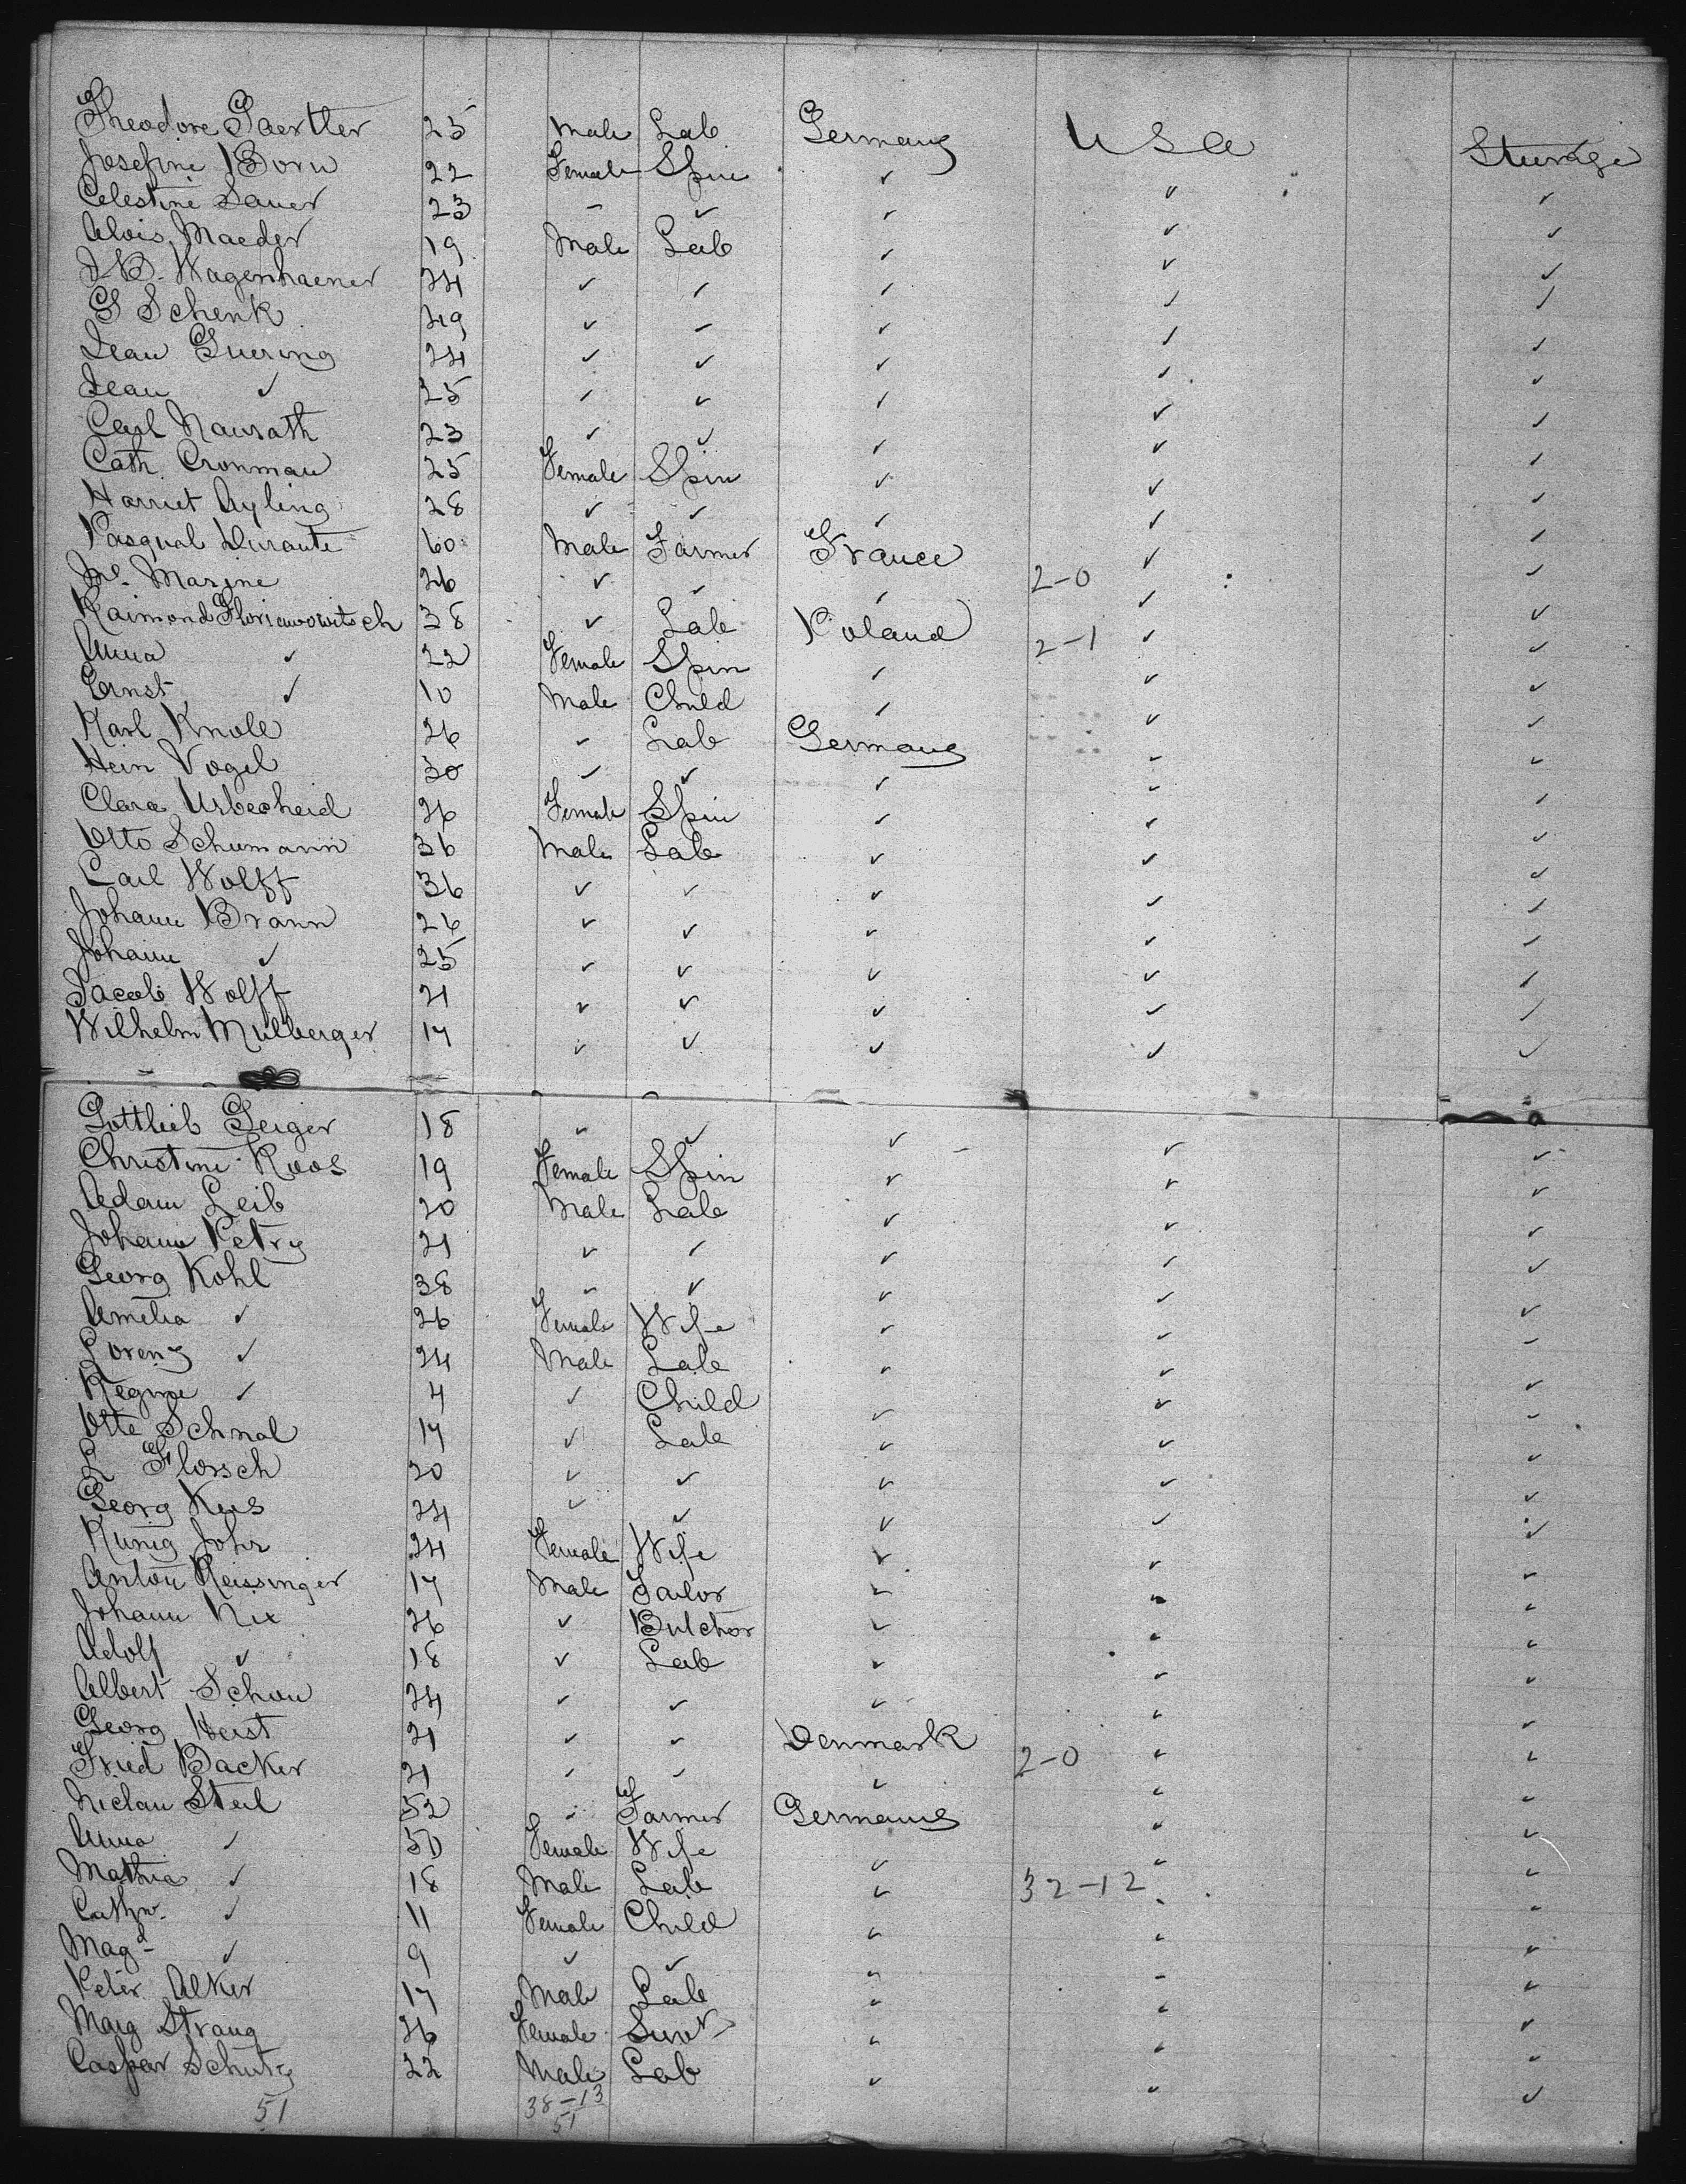 Theodore Gaertler 25 Male Lab Germany USA Steerage
Josefine Born 22 Female Spin ✓ ✓ ✓
Celestine Sauer 23 – ✓ ✓ ✓ ✓
Alois Maeder 19 Male Lab ✓ ✓ ✓
J. B. Wagenhaener 24 ✓ ✓ ✓ ✓ ✓
G Schenk 29 ✓ – ✓ ✓ ✓
Jean Guering 24 ✓ ✓ ✓ ✓ ✓
Jean ✓ 25 ✓ ✓ ✓ ✓ ✓
Carl Naurath 23 ✓ ✓ ✓ ✓ ✓
Cath. Cronmau 25 Female Spin ✓ ✓ ✓
Harriet Ayling 28 ✓ ✓ ✓ ✓ ✓
Pasqual Durante 60 Male Farmer France ✓ ✓
Marine 26 ✓ ✓ ✓ 2-0 ✓ ✓
Raimond 38 ✓ Lab Poland ✓ ✓
Anna ✓ 22 Female Spin ✓ 2-1 ✓ ✓
Ernst ✓ 10 Male Child ✓ ✓ ✓
Karl Knoll 26 ✓ Lab Germany ✓ ✓
Hein Vogel 30 ✓ ✓ ✓ ✓ ✓
Clara Urbescheid 26 Female Spin ✓ ✓ ✓
Otto Schumann 36 Male Lab ✓ ✓ ✓
Carl Wolff 36 ✓ ✓ ✓ ✓ ✓
Johann Brann 26 ✓ ✓ ✓ ✓ ✓
Johann ✓ 25 ✓ ✓ ✓ ✓ ✓
Jacob Wolff 21 ✓ ✓ ✓ ✓ ✓
Wilhelm Mulberger 17 ✓ ✓ ✓ ✓ ✓
Gottlieb Geiger 18 ✓ ✓ ✓ ✓ ✓
Christine Roos 19 Female Spin ✓ ✓ ✓
Adam Leib 20 Male Lab ✓ ✓ ✓
Johann Petry 21 ✓ ✓ ✓ ✓ ✓
Georg Kohl 38 ✓ ✓ ✓ ✓ ✓
Amelia ✓ 26 Female Wife ✓ ✓ ✓
Lorenz ✓ 24 Male Lab ✓ ✓ ✓
Regine ✓ 4 ✓ Child ✓ ✓ ✓
Otto Schnal 17 ✓ Lab ✓ ✓ ✓
Florsch 20 ✓ ✓ ✓ ✓ ✓
Georg Keis 24 ✓ ✓ ✓ ✓ ✓
Kunig Johr 24 Female Wife ✓ ✓ ✓
Anton Reissinger 17 Male Tailor ✓ ✓ ✓
Johann Nix 26 ✓ Butcher ✓ ✓ ✓
Adolf ✓ 18 ✓ Lab ✓ ✓ ✓
Albert Schou 24 ✓ ✓ ✓ ✓ ✓
Georg Heist 21 ✓ ✓ Denmark ✓ ✓
Fried Backer 21 ✓ ✓ ✓ 2-0 ✓ ✓
Niclau Steil 52 ✓ Farmer Germany ✓ ✓
Anna ✓ 50 Female Wife ✓ ✓ ✓
Mathias ✓ 18 Male Lab ✓ 32-12 ✓ ✓
Cathr. ✓ 11 Female Child ✓ ✓ ✓
Magd ✓ 9 ✓ ✓ ✓ ✓ ✓
Peter Alker 17 Male Lab ✓ ✓ ✓
Marg Strang 26 Female Servt ✓ ✓ ✓
Caspar Schutz 22 Male Lab ✓ ✓ ✓
51 38-13
51